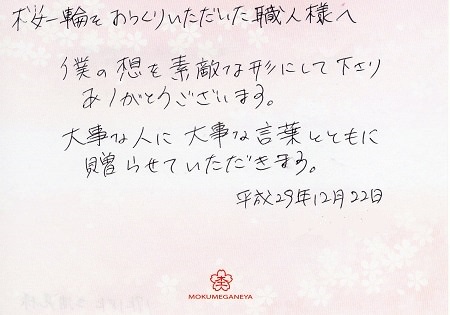 桜一輪をおつくりいただいた職人様へ
僕の想を素敵な形にして下さり
ありがとうございます。
大事な人に大事な言葉とともに
贈らせていただきます。
平成29年12月22日
MOKUMEGANEYA